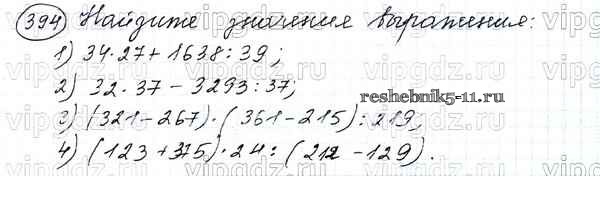 394 Найдите значения выражения:
1) 34·27+1638:39;
2) 32·37-3293:37;
reshebnik5-11.ru
3) (321-267)·(361-215):219;
4) (123+375)·24:(212-129).
vipgdz.ru